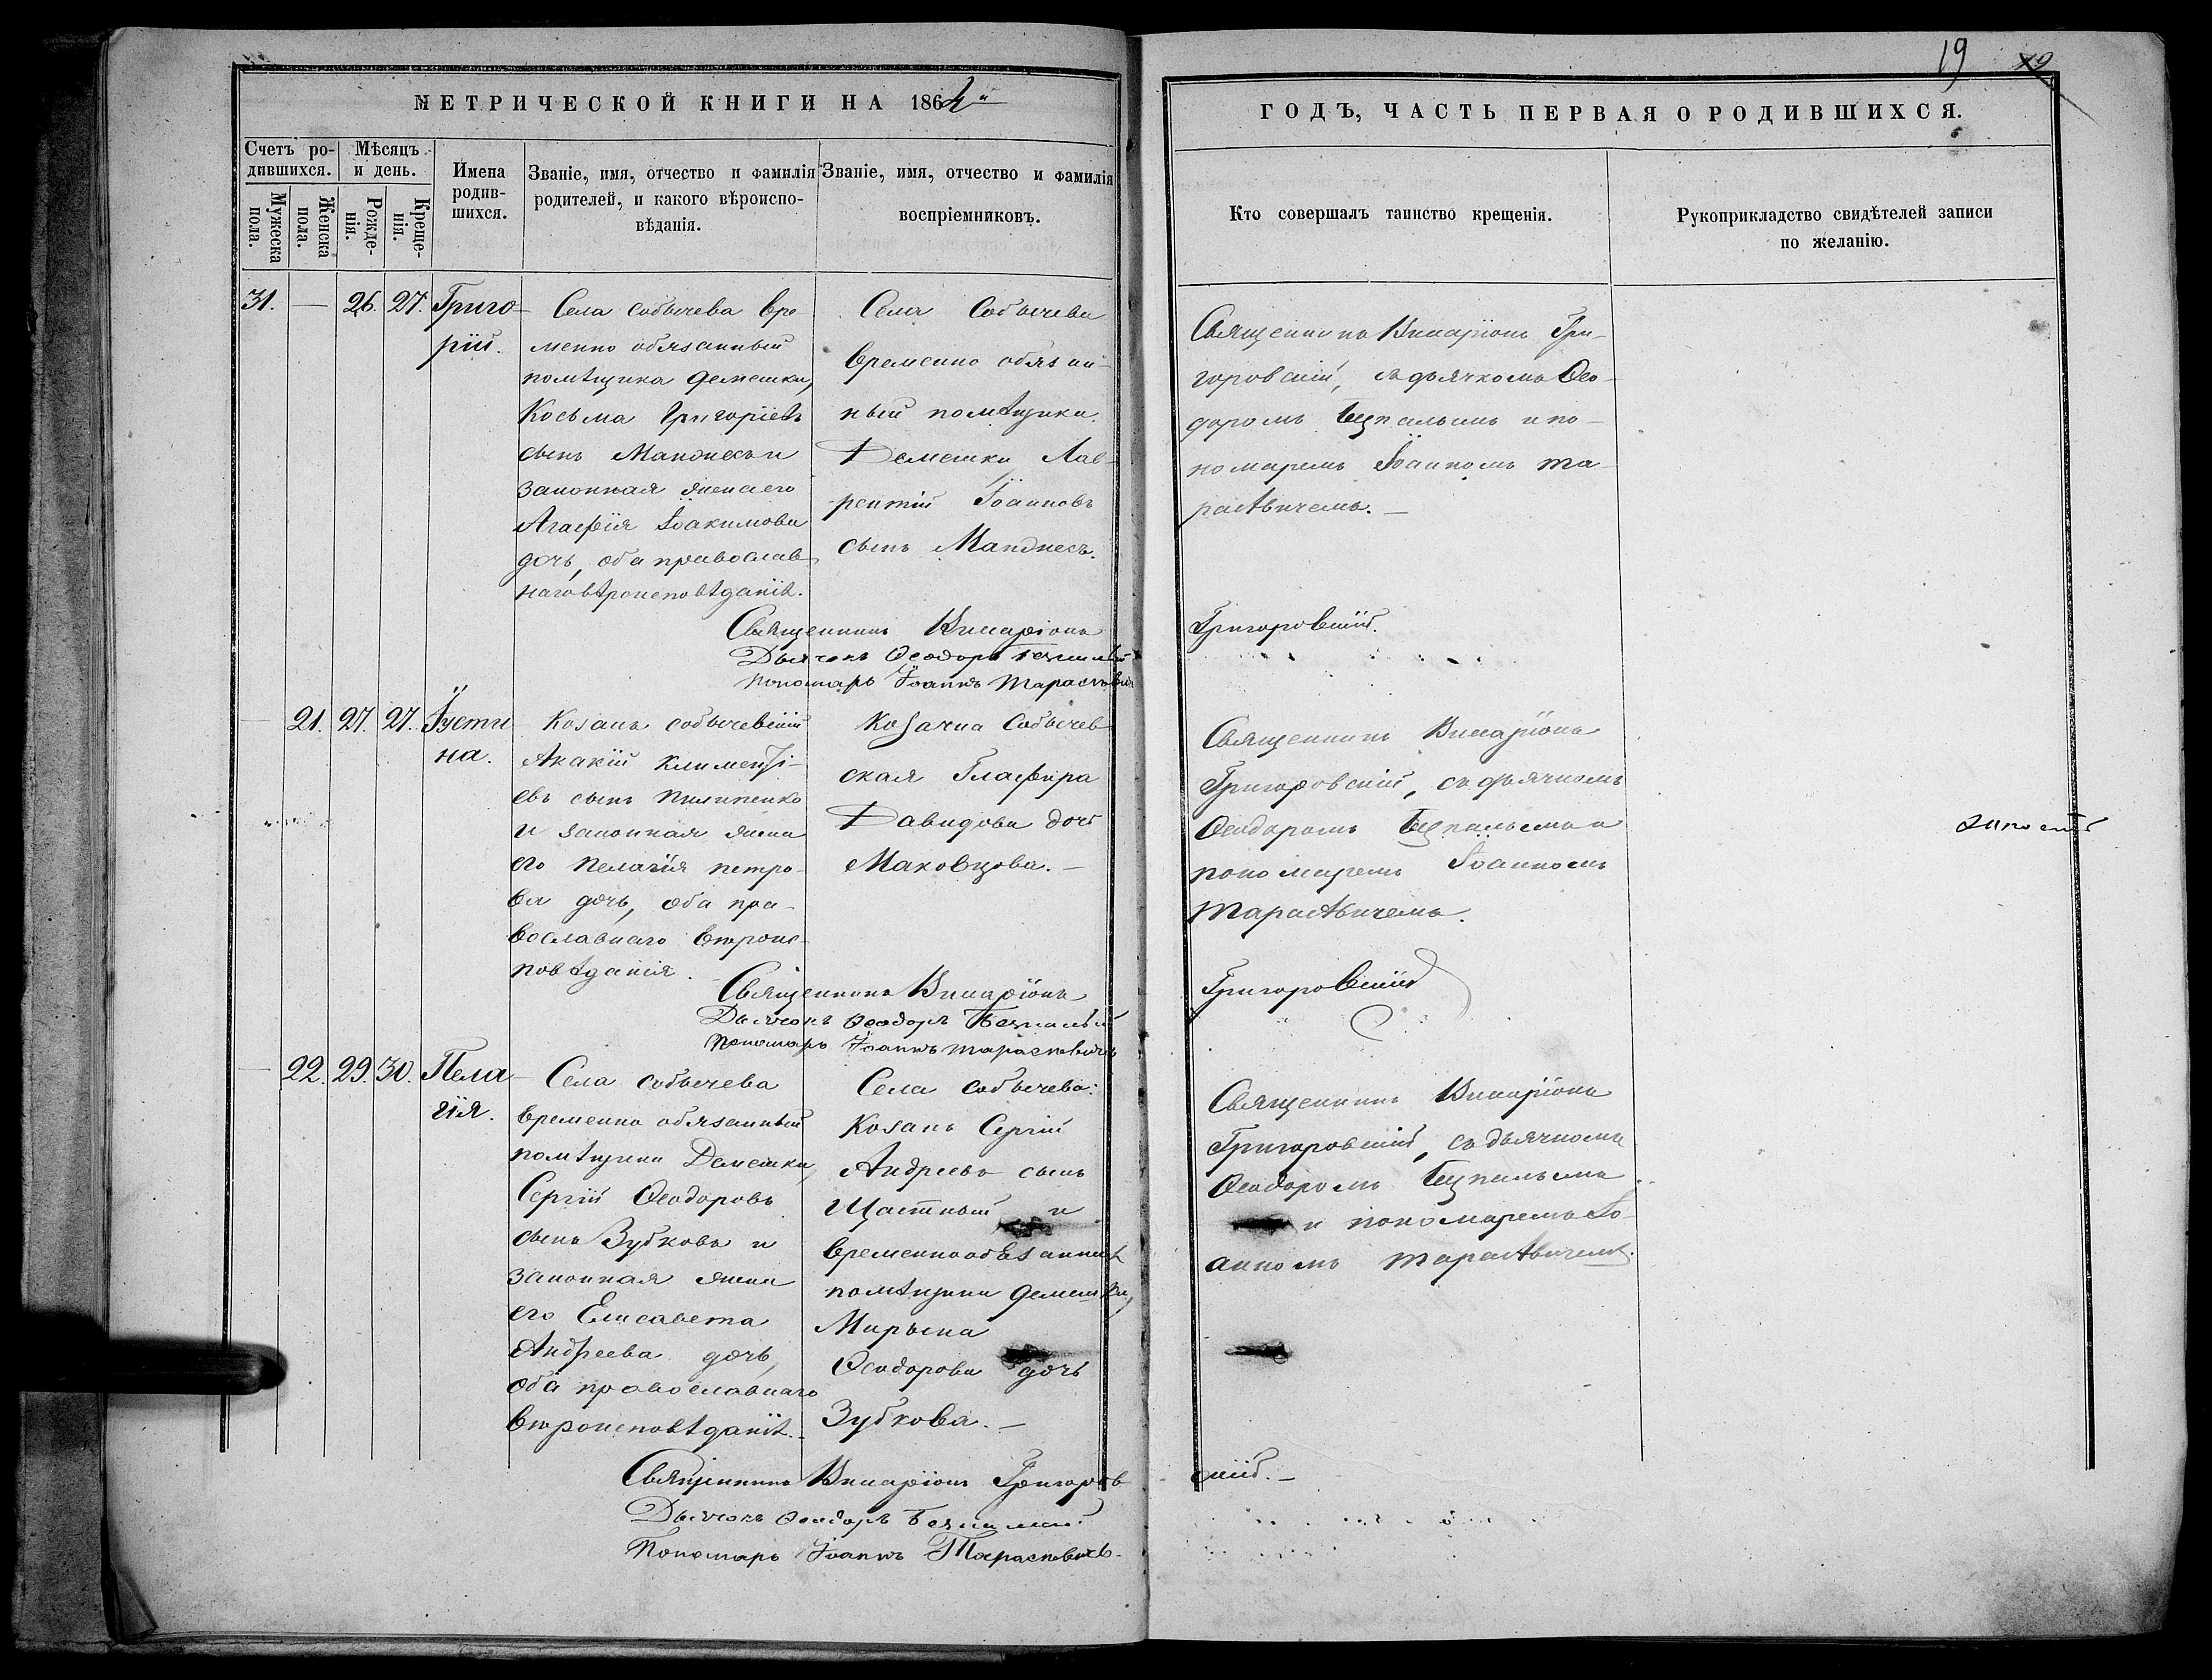 19
МЕТРИЧЕСКОЙ КНИГИ НА 1864й
ГОДЪ, ЧАСТЬ ПЕРВАЯ О РОДИВШИХСЯ.
Счетъ ро-
дившихся.
Мужеска
пола.
Женска
пола.
Мѣсяцъ
и день.
Рожде-
нія.
Креще-
нія.
Имена
родив-
шихся.
Званіе, имя, отчество и фамилія
родителей, и какого вѣроиспо-
вѣданія.
Званіе, имя, отчество и фамилія
воспріемниковъ.
Кто совершалъ таинство крещенія.
Рукоприкладство свидѣтелей записи
по желанію.
31. — 26. 27. Григо-
рій.
Села Собычева вре
менно обязанный
помѣщика Демешки,
Косьма Григоріевъ
сынъ и
законная жена его
Агафія Іоакимова
дочь, оба православ
наго вѣроисповѣданія.
Села Собычева
временно обязан-
ный помѣщика
Демешки Лав-
рентій Іоанновъ
сынъ
Священникъ Иларіонъ Гри-
горовскій, съ дьячкомъ Ѳео-
доромъ и по-
номаремъ Іоанномъ Та-
расѣвичемъ. —
Священникъ Иларіонъ Григоровскій.
Дьячокъ Ѳеодоръ
Пономарь Іоаннъ Тарасѣвичъ
— 21. 27. 27. Іусти
на.
Козакъ собычевскій
Акакій Климентi-
евъ сынъ Пилипенко
и законная жена
его Пелагія Петро-
ва дочь, оба пра-
вославнаго вѣроис-
повѣданія.
Козачка Собычев-
ская Глафира
Давидова дочь
Маковцова. —
Священникъ Иларіонъ
Григоровскій, съ дьячкомъ
Ѳеодоромъ и
пономаремъ Іоанномъ
Тарасѣвичемъ.
Священникъ Иларіонъ Григоровскій
Дьячокъ Ѳеодоръ
Пономарь Іоаннъ Тарасѣвичъ
— 22. 29. 30. Пела-
гія.
Села Собычева
временно обязанный
помѣщика Демешки,
Сергій Ѳеодоровъ
сынъ Зубковъ и
законная жена
его Елисавета
Андреева дочь,
оба православнаго
вѣроисповѣданія. —
Села Собычева:
Козакъ Сергій
Андреевъ сынъ
Щастный и
временнообязанная
помѣщика Демешки,
Ѳеодорова дочь
Зубкова. —
Священникъ Иларіонъ
Григоровскій, съ дьячкомъ
Ѳеодоромъ
и пономаремъ Іо-
анномъ Тарасѣвичемъ.
Священникъ Иларіонъ Григоров
скій. —
Дьячокъ Ѳеодоръ
Пономарь Іоаннъ Тарасѣвичъ.